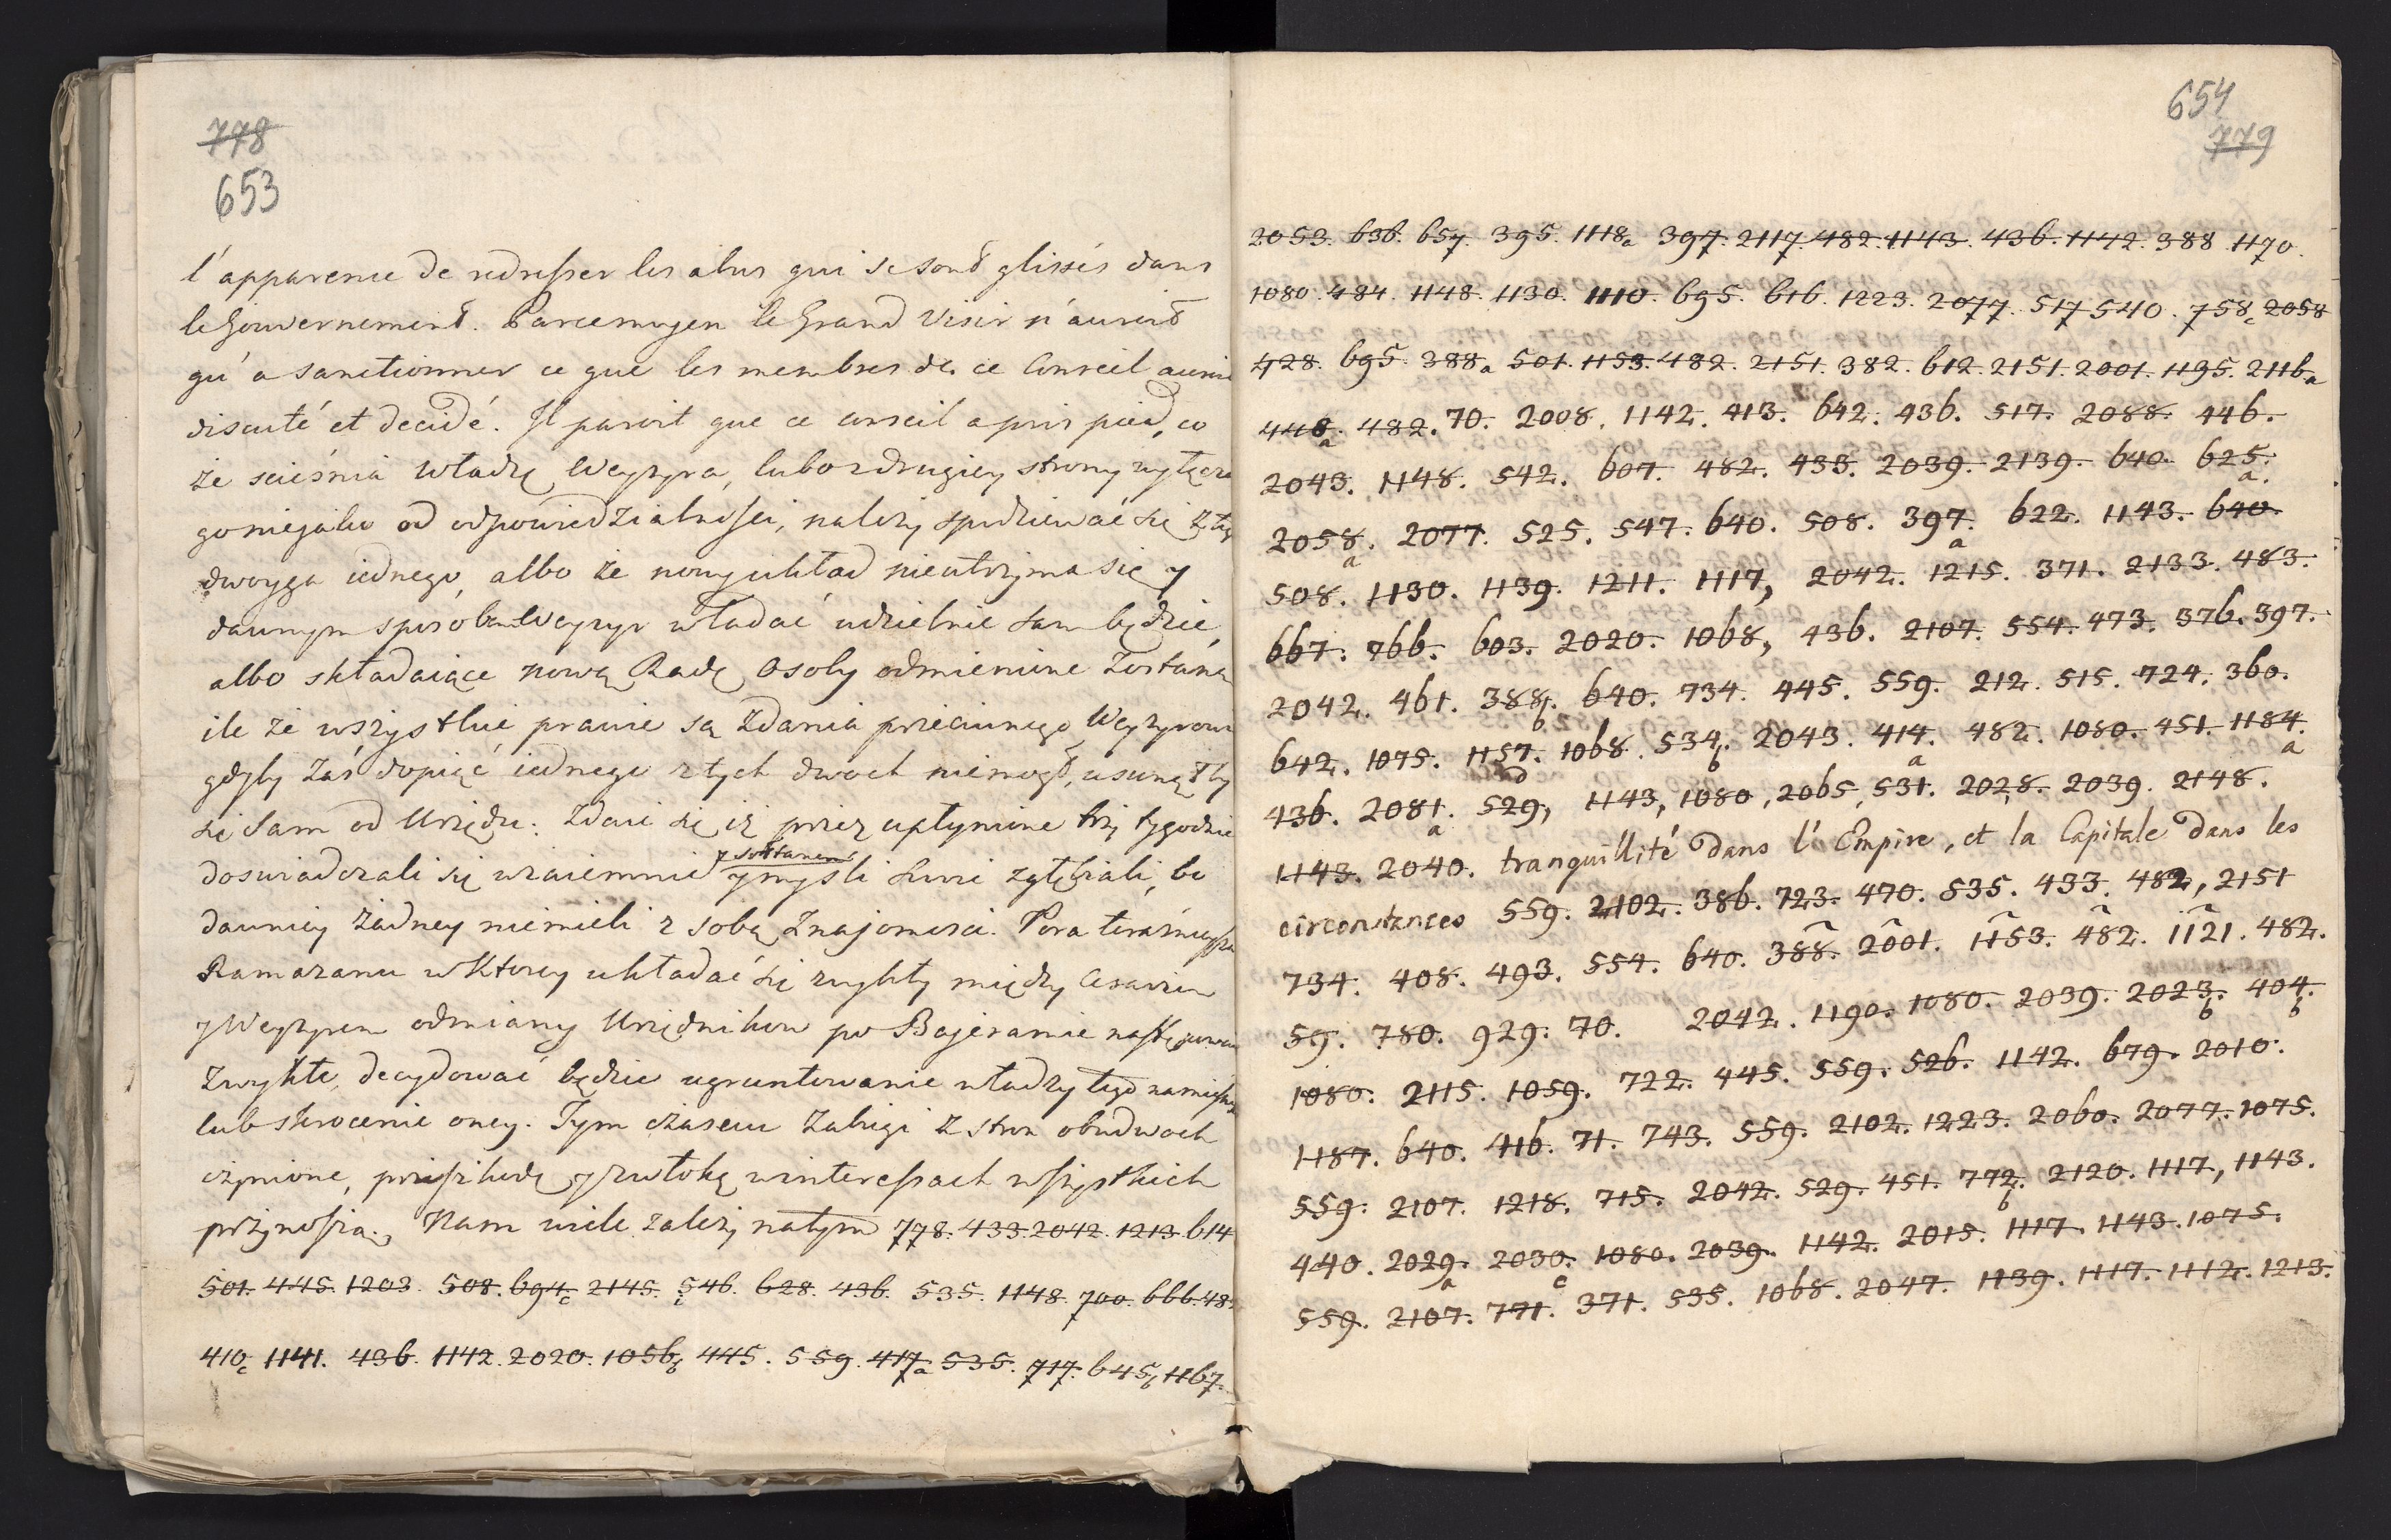 778
653
l'apparence de redresser les abus qui se sont glissés dans
le Gouvernement. Parcemoyen le Grand Visir n'auroit
qu'a sanctionner ce que les membres de ce Conseil auroi
discuté et decidé. Il paroit que ce conseil a pris pied, co
że scieśnia władzę Wezyra, lubo z drugiey strony wyłącza
go niejako od odpowiedzialności, należy spodziewać się z tey
dwoyga iednego, albo że nowy układ nieutrzyma się y
dawnym sposobem Wezyr władać udzielnie sam będzie,
albo składaiące nową Radę Osoby odmienione zostaną
ile że wszystkie prawie są zdania przeciwnego Wezyrowi
gdyby zaś dopiąć iednego z tych dwoch niemogł, usunąłby
się sam od Urzędu. Zdaie się iż przez upłynione trzy tygodnie
doswiadczali się wzaiemnie z Sułtanem y myśli swoie zgłębiali, bo
dawniey żadney niemieli z sobą znajomosci. Pora teraśnieysza
Ramazanu w ktorey układać się zwykły między Cesarzem
y Wezyrem odmiany Urzędnikow po Bajramie następować
zwykłe, decydować będzie ugruntowanie władzy tego namiest
lub skrocenie oney. Tym czasem zabiegi z stron obudwoch
czynione, przeszkodę y zwłokę w interessach wszystkich
przynoszą. Nam wiele zależy na tym 778. 433. 2042. 1213. 614
501. 445. 1203. 508. 694c. 2145. 546. 628. 436. 535. 1148. 700. 666. 48
410c 1141. 436. 1142. 2020. 1056b 445. 559. 417a 535. 717. 645b 1167.
654
779
2053. 636. 657. 395. 1118a 397. 2117. 482. 1143. 436. 1142. 388. 1170.
1080. 484. 1148. 1130. 1110. 695. 616. 1223. 2077. 517. 540. 758c 2058
428. 695. 388a 501. 1153. 482. 2151. 382. 612. 2151. 2001. 1195. 2116a
448a. 482. 70. 2008. 1142. 413. 642. 436. 517. 2088. 446.
2043. 1148. 542. 607. 482. 433. 2039. 2139. 640. 625a.
2058a. 2077. 525. 547. 640. 508. 397a. 622. 1143. 640.
508. 1130. 1139. 1211. 1117, 2042. 1215. 371. 2133. 483.
667. 766. 603. 2020. 1068, 436. 2107. 554. 473. 376. 397.
2042. 461. 388b. 640. 734. 445. 559. 212. 515. 724. 360.
642. 1075. 1157d. 1068. 534b. 2043. 414a. 482. 1080. 451. 1184a.
436. 2081a. 529, 1143, 1080, 2065, 531. 2028. 2039. 2148.
1143. 2040. tranquillité dans l'Empire, et la Capitale dans les
circonstances 559. 2102. 386. 723. 470. 535. 433. 482, 2151
734. 408. 493. 554. 640. 388. 2001. 1153. 482. 1121. 482.
59. 780. 929. 70. 2042. 1190. 1080. 2039. 2023b. 404b.
1080. 2115. 1059. 722. 445. 559. 526. 1142. 679. 2010.
1187. 640. 416. 71. 743. 559. 2102. 1223. 2060. 2077. 1075.
559. 2107. 1218. 715. 2042. 529. 451. 772b. 2120. 1117, 1143.
440. 2029a. 2030c. 1080. 2039. 1142. 2015. 1117. 1143. 1075.
559. 2107. 771. 371. 535. 1068. 2047. 1139. 1117. 1112. 1213.